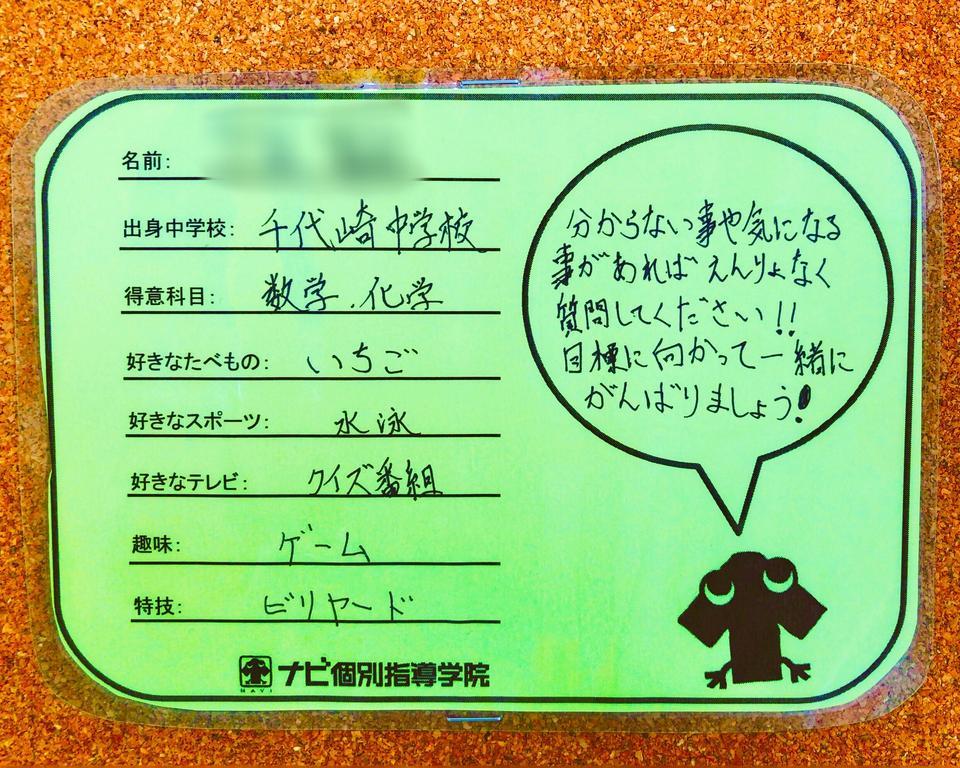 名前:
出身中学校: 千代崎中学校
得意科目: 数学、化学
好きなたべもの: いちご
好きなスポーツ: 水泳
好きなテレビ: クイズ番組
趣味: ゲーム
特技: ビリヤード
NAVI ナビ個別指導学院
分からない事や気になる
事があれば えんりょなく
質問してください!!
目標に向かって一緒に
がんばりましょう!